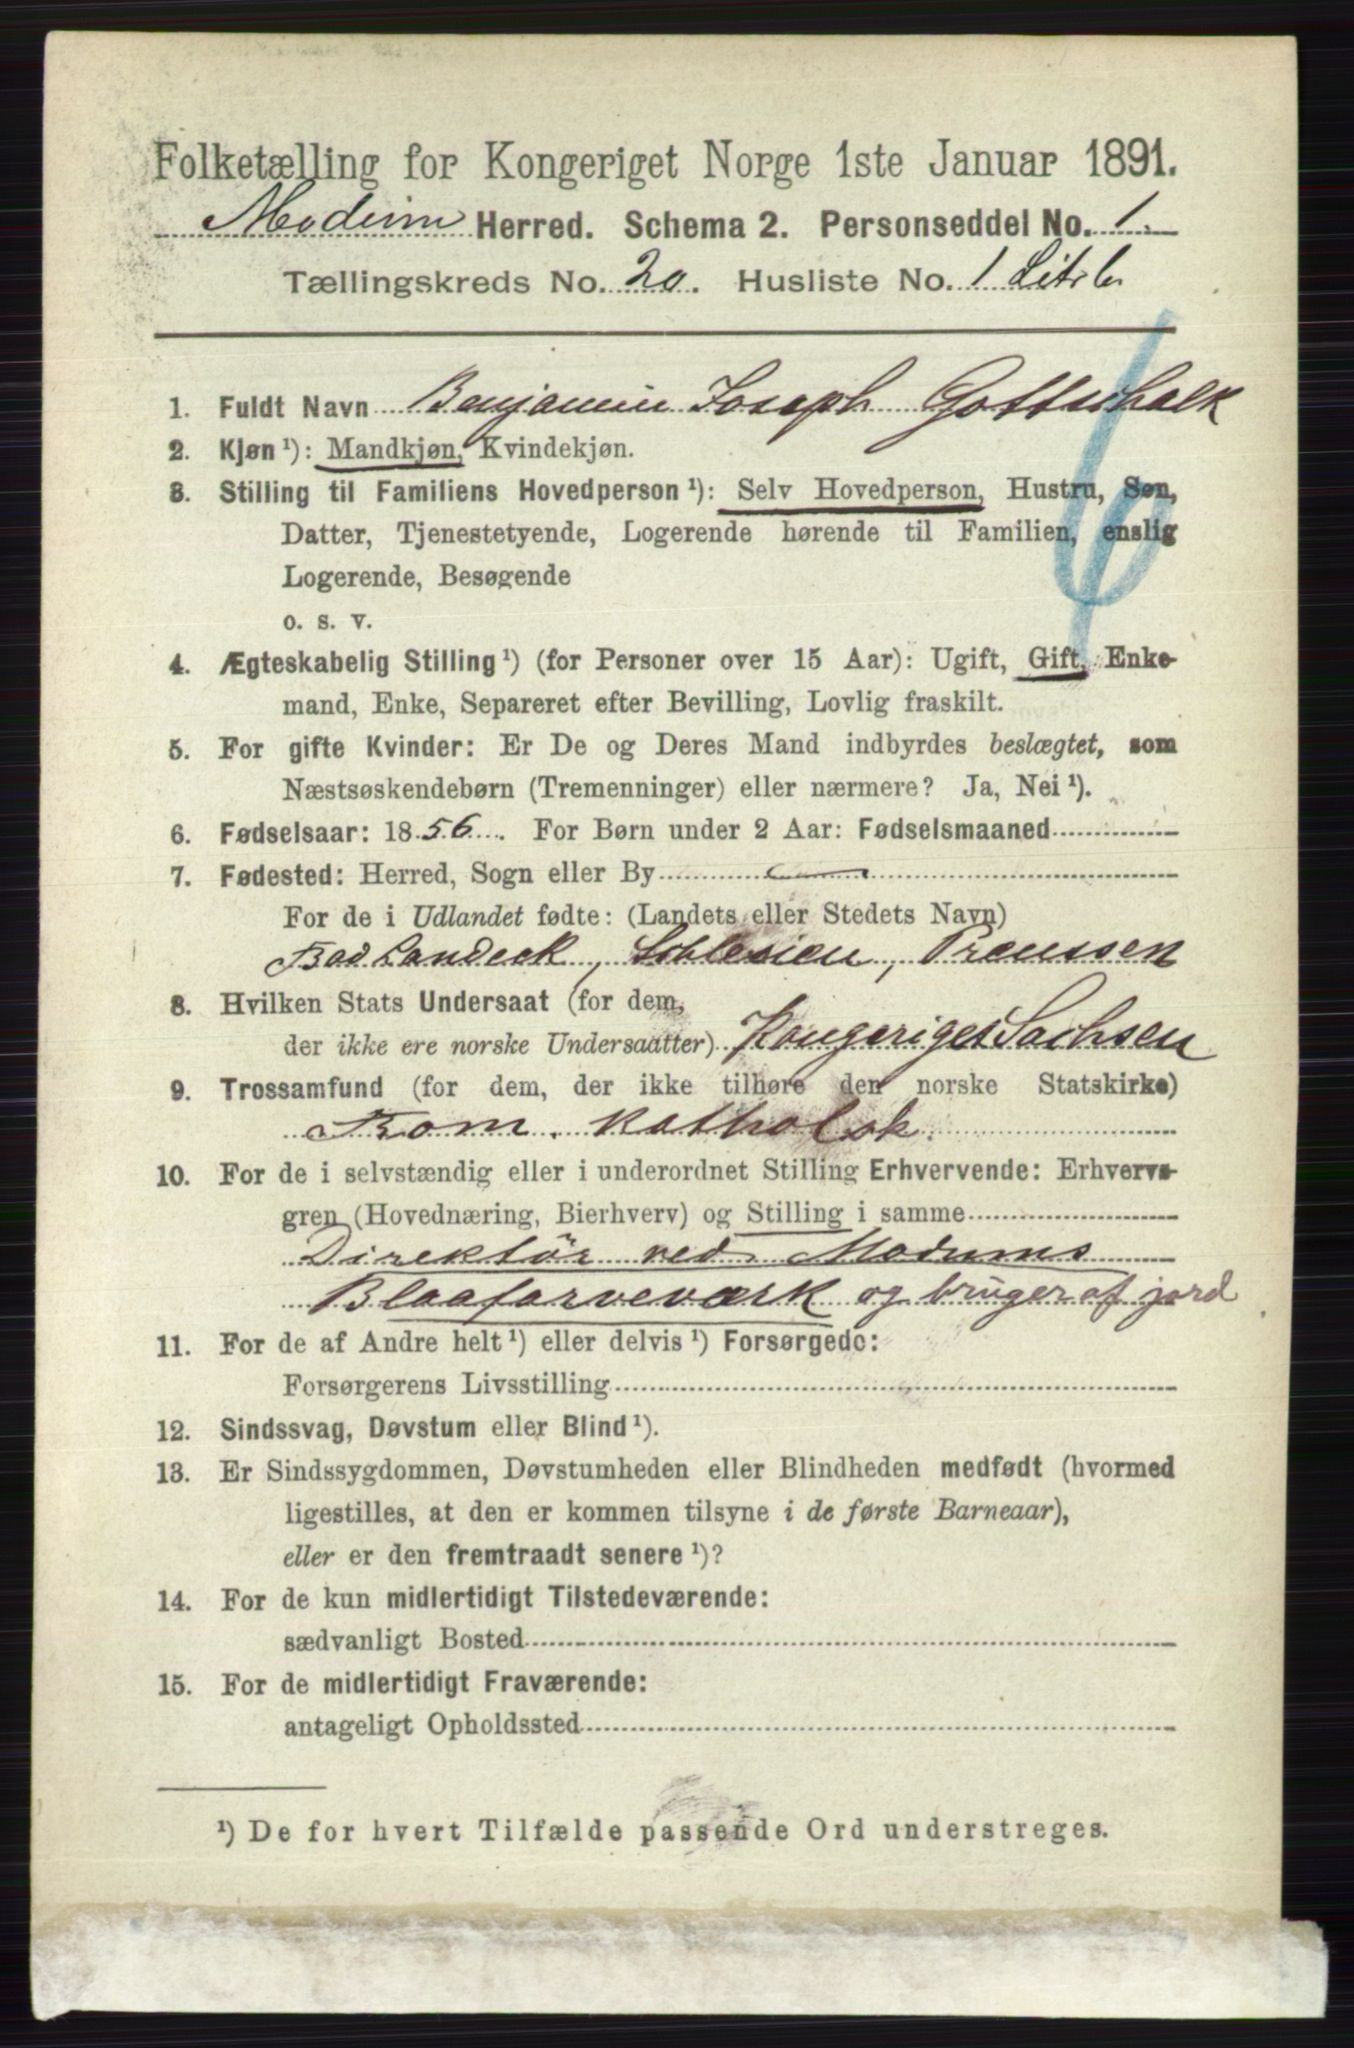 Folketælling for Kongeriget Norge 1ste Januar 1891.
Modum Herred. Schema 2. Personseddel No. 1.
Tællingskreds No. 20. Husliste No. 1 Litr b
1. Fuldt Navn Benjamin Joseph Gottschalk
2. Kjøn ¹): Mandkjøn, Kvindekjøn.
3. Stilling til Familiens Hovedperson ¹): Selv Hovedperson, Hustru, Søn,
Datter, Tjenestetyende, Logerende hørende til Familien, enslig
Logerende, Besøgende
o. s. v.
4. Ægteskabelig Stilling ¹) (for Personer over 15 Aar): Ugift, Gift, Enke-
mand, Enke, Separeret efter Bevilling, Lovlig fraskilt.
5. For gifte Kvinder: Er De og Deres Mand indbyrdes beslægtet, som
Næstsøskendebørn (Tremenninger) eller nærmere? Ja, Nei ¹).
6. Fødselsaar: 1856. For Børn under 2 Aar: Fødselsmaaned
7. Fødested: Herred, Sogn eller By —
For de i Udlandet fødte: (Landets eller Stedets Navn)
Bad Landeck, Schlesien, Preussen
8. Hvilken Stats Undersaat (for dem,
der ikke ere norske Undersaatter) Kongeriget Sachsen
9. Trossamfund (for dem, der ikke tilhøre den norske Statskirke)
Rom. katholsk.
10. For de i selvstændig eller i underordnet Stilling Erhvervende: Erhvervs-
gren (Hovednæring, Bierhverv) og Stilling i samme
Direktør ved Modums
Blaafarveværk og bruger af jord
11. For de af Andre helt ¹) eller delvis ¹) Forsørgede:
Forsørgerens Livsstilling
12. Sindssvag, Døvstum eller Blind ¹).
13. Er Sindssygdommen, Døvstumheden eller Blindheden medfødt (hvormed
ligestilles, at den er kommen tilsyne i de første Barneaar),
eller er den fremtraadt senere ¹)?
14. For de kun midlertidigt Tilstedeværende:
sædvanligt Bosted
15. For de midlertidigt Fraværende:
antageligt Opholdssted
¹) De for hvert Tilfælde passende Ord understreges.